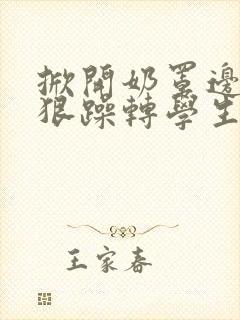 掀開奶罩邊
狠躁轉學生
王家春